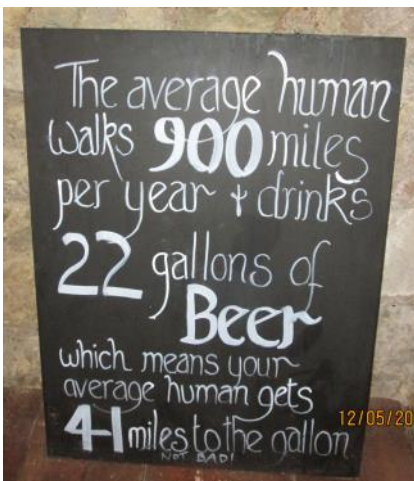 The average human
walks 900 miles
per year & drinks
22 gallons of
Beer
which means your
average human gets
41 miles to the gallon
NOT BAD!
12/05/20